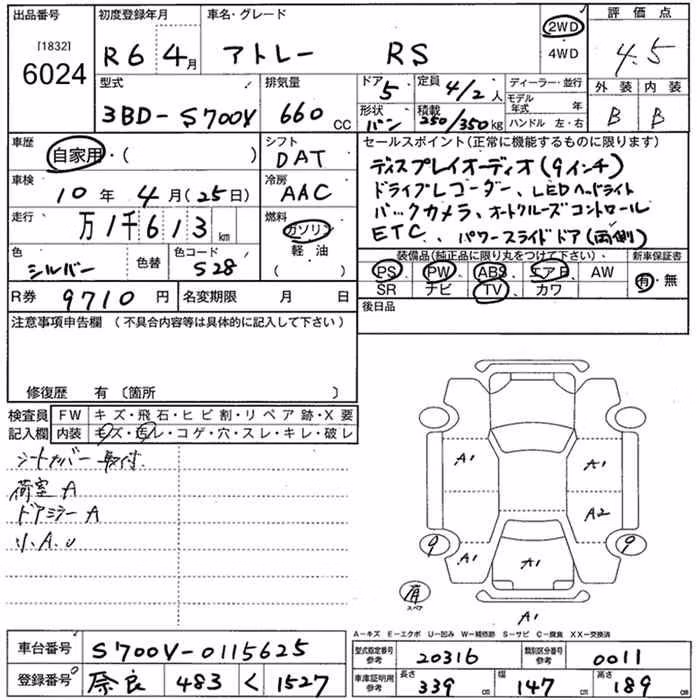 出品番号 初度登録年月 車名・グレード 評価点
[1832]
6024
R6 4月 アトレー RS 2WD 4WD 4.5
型式 排気量 ドア 5 定員 4/2人 ディーラー・並行 外装 内装
3BD-S700V 660 CC 形状 バン 積載 250/350kg モデル年式 年 B B
ハンドル 左・右
車歴 自家用・( ) シフト DAT
セールスポイント(正常に機能するものに限ります)
ディスプレイオーディオ(9インチ)
車検 10年 4月(25日) 冷房 AAC
ドライブレコーダー、LEDヘッドライト
走行 万1千613km 燃料 ガソリン 軽油
バックカメラ、オートクルーズコントロール
ETC、パワースライドドア(両側)
色 シルバー 色替 色コード S28
装備品(純正品に限り丸をつけて下さい) 新車保証書
PS PW ABS エアB AW 有・無
SR ナビ TV カワ
R券 9710円 名変期限 月 日
後日品
注意事項申告欄(不具合内容等は具体的に記入して下さい)
修復歴 有〔箇所 〕
検査員記入欄 FW キズ・飛石・ヒビ割・リペア跡・X要
内装 キズ・汚レ・コゲ・穴・スレ・キレ・破レ
シートカバー取付
荷室A
ドアミラーA
小A.U
A1 A1
A2
9 9
A1 A1
有 スペア
A1
A-キズ E-エクボ U-凹み W-補修跡 S-サビ C-腐食 XX-交換済
車台番号 S700V-0115625
型式指定番号 参考 20316 類別区分番号 参考 0011
登録番号 奈良 483 く 1527
車庫証明用 参考 長さ 339cm 幅 147cm 高さ 189cm